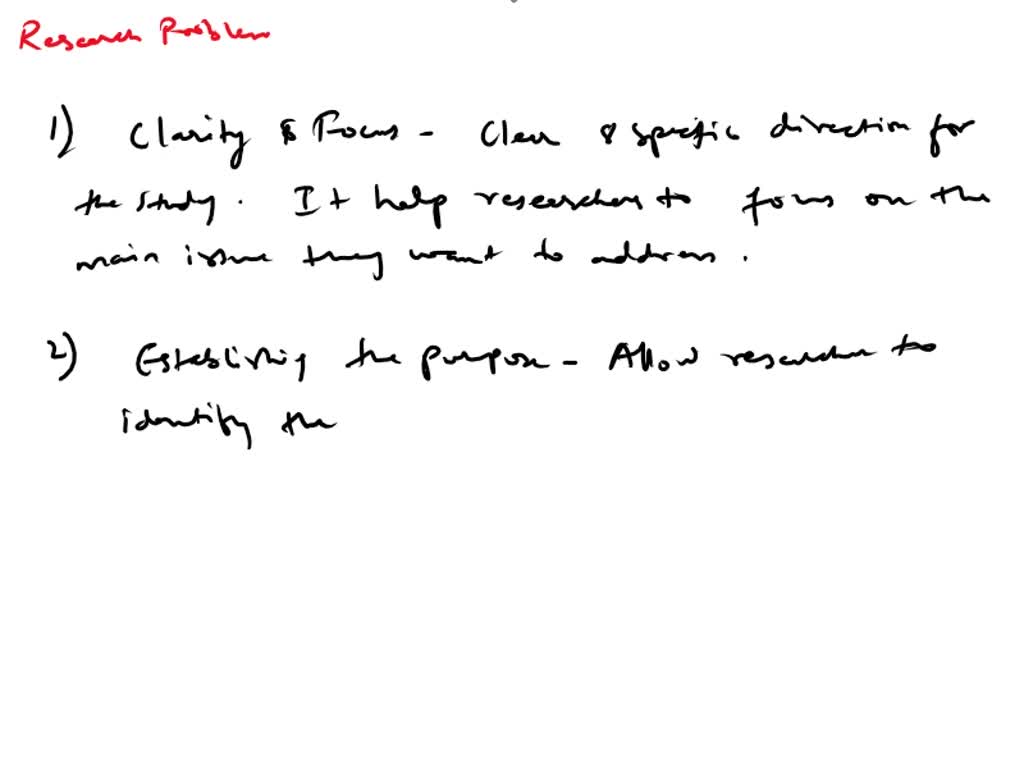 Research Problem
1) Clarity & Focus - Clear & specific direction for
the study. It help researchers to focus on the
main issue they want to address.
2) Establishing the purpose - Allow researcher to
identify the